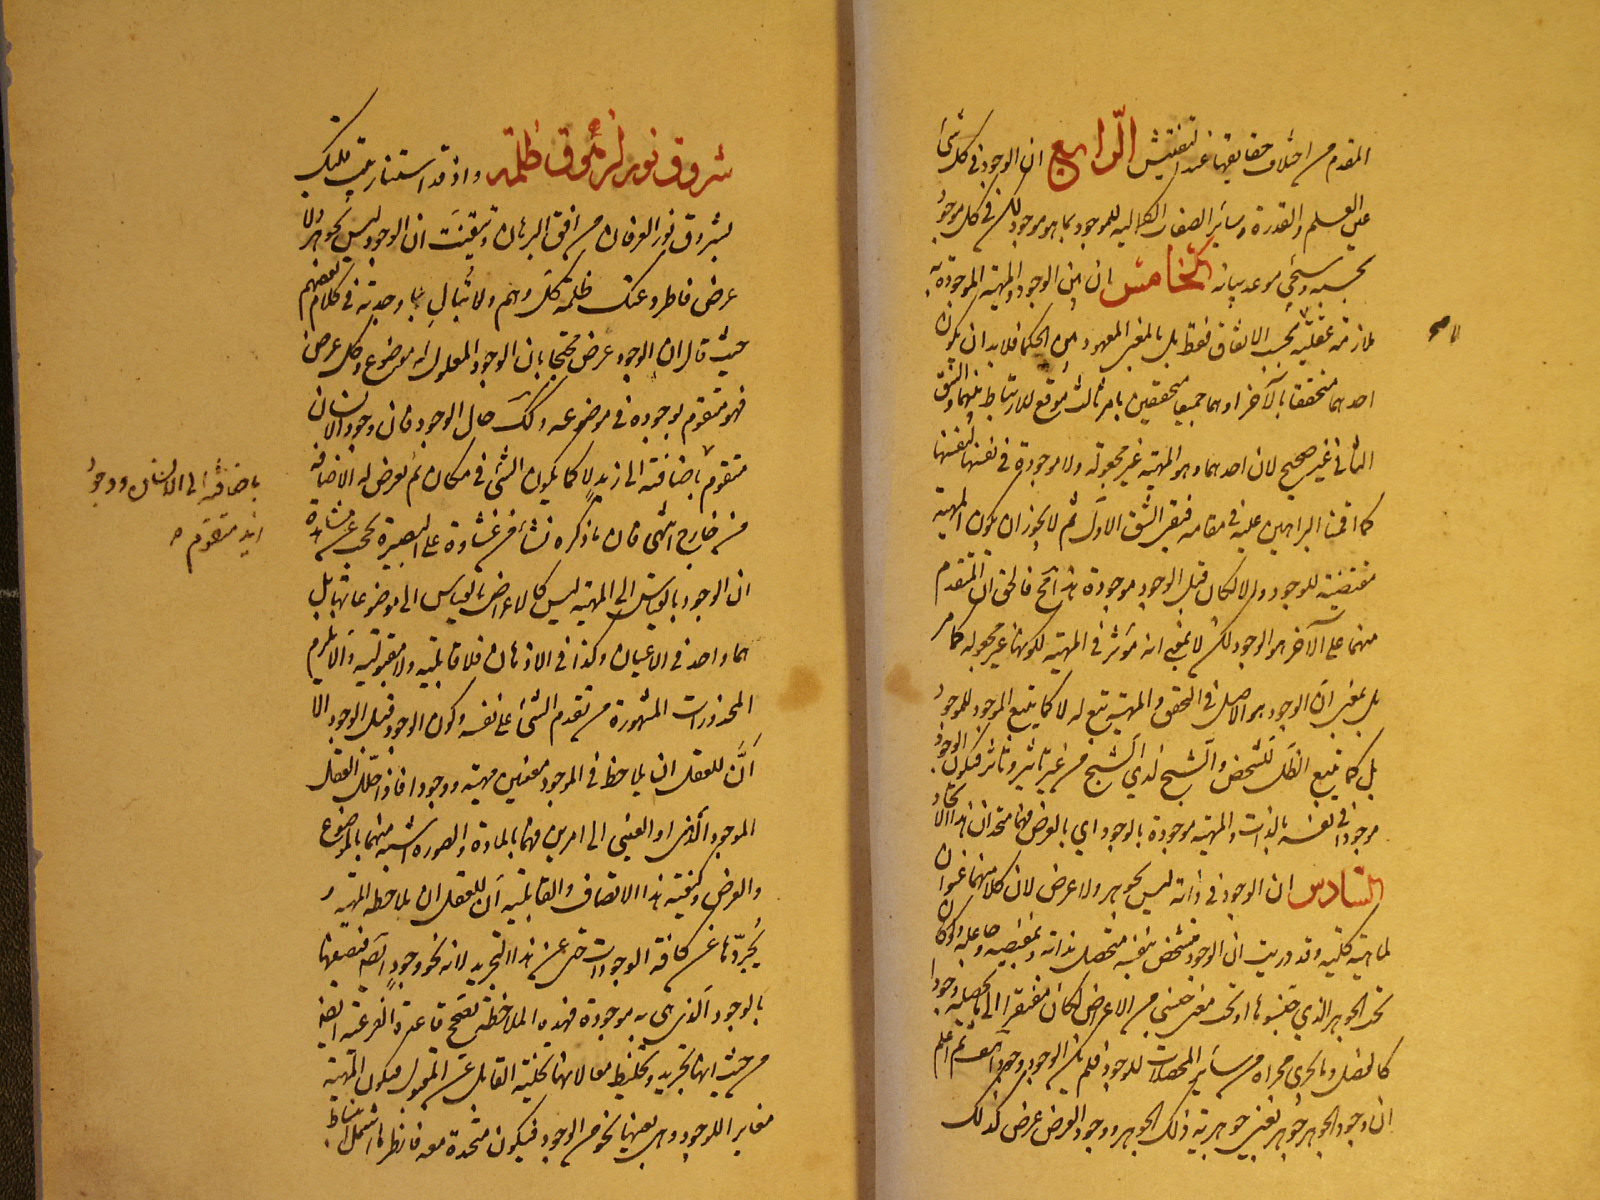 المقدم من اختلاف حقايقها عند التفتيش الرابع ان الوجود في كل شئ
عين العلم والقدرة وساير الصفات الكمالية للموجود بما هو موجود لكن في كل موجود
بحسبه وسيجي موعد بيانه الخامس ان بين الوجود والمهية الموجودة به
ملازمة عقلية لا بحسب الاتفاق فقط بل بالمعنى المعهود بين الحكما فلا بد ان يكون
احدهما متحققا بالآخر او هما جميعا متحققين بامر ثالث موقع للارتباط بينهما والشق
الثاني غير صحيح لان احدهما وهو المهية غير مجعولة ولا موجودة في نفسها لنفسها
كما اقمنا البراهين عليه في مقامه فبقى الشق الاول ثم لا يجوز ان يكون المهية
مقتضية للوجود والا لكان قبل الوجود موجودة هذا مح فالحق ان المتقدم
منهما على الآخر هو الوجود لكن لا بمعنى انه مؤثر في المهية لكونها غير مجعولة كما مر
بل بمعنى ان الوجود هو الاصل في التحقق والمهية تبع له لا كما يتبع الموجود للموجود
بل كما يتبع الظل للشخص والشبح لذي الشبح من غير تاثير وتاثر فيكون الوجود
موجودا في نفسه بالذات والمهية موجودة بالوجود اي بالعرض فهما متحدان بهذا الاتحاد
السادس ان الوجود في ذاته ليس بجوهر ولا عرض لان كلا منهما عنوان
لماهية كلية وقد دريت ان الوجود متشخص بنفسه متحصل بذاته وبمفيضه وجاعله ولو كان
تحت الجوهر الذي جنسوها او تحت معنى جنسي من الاعراض لكان مفتقرا الى ما يحصله وجودا
كالفصل وما يجرى مجراه من ساير المحصلات للوجود فلم يكن الوجود وجودا هف ثم اعلم
ان وجود الجوهر جوهر بعين جوهرية ذلك الجوهر ووجود العرض عرض كذلك
لا صح
شروق نور لزهوق ظلمة واذ قد استنار بيت قلبك
بشروق نور العرفان من افق البرهان وتيقنت ان الوجود ليس بجوهر ولا
عرض فاطرد عنك ظلمة كل وهم ولا تبال بما وجدته في كلام بعضهم
حيث قال ان الوجود عرض محتجا بان الوجود المعلول له موضوع وكل عرض
فهو متقوم بوجوده في موضوعه وكك حال الوجود فان وجود الانسان
متقوم باضافته الى زيد لا كما يكون الشئ في مكان ثم يعرض له الاضافة
من خارج انتهى فان ما ذكره نشأ من غشاوة على البصيرة تحجب عن مشاهدة
ان الوجود بالقياس الى المهية ليس كالاعراض بالقياس الى موضوعاتها بل
هما واحد في الاعيان وكذا في الاذهان فلا قابلية ولا مقبولية والا يلزم
المحذورات المشهورة من تقدم الشئ على نفسه وكون الوجود قبل الوجود الا
ان للعقل ان يلاحظ في الموجود معنيين مهية ووجودا فاذا حلل العقل
الموجود الذهني او العيني الى امرين فهما بالمادة والصورة اشبه منهما بالموضوع
والعرض وكيفية هذا الاتصاف والقابلية ان للعقل ان يلاحظ المهية و
يجردها عن كافة الوجودات حتى عن هذا التجريد لانه نحو وجود ايضا فيصفها
بالوجود الذي هي به موجودة فهذه الملاحظة تصحح قاعدة الفرعية ايضا
من حيث انها تجريد وتخليط معا لانها تخلية القابل عن المقبول فيكون المهية
مغايرا للوجود وهي بعينها نحو من الوجود فيكون متحدة معه فانظر ما اشمل انبساط
باضافته الى الانسان ووجود
زيد متقوم ص